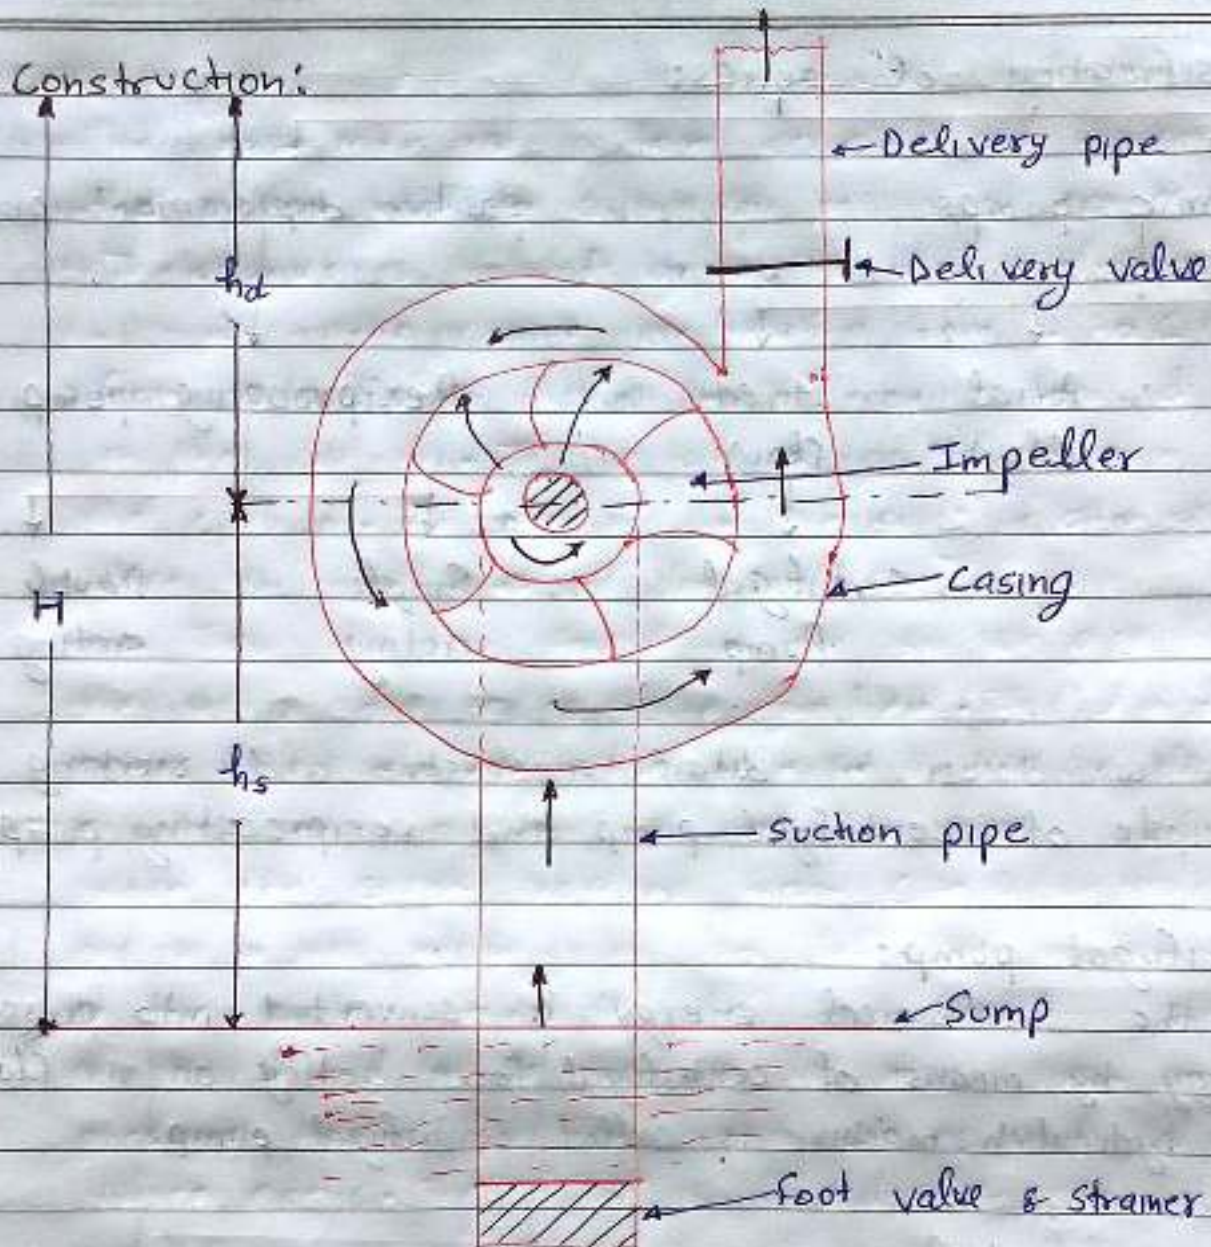 Construction:
Delivery pipe
Delivery valve
hd
Impeller
Casing
H
hs
Suction pipe
Sump
foot valve & strainer